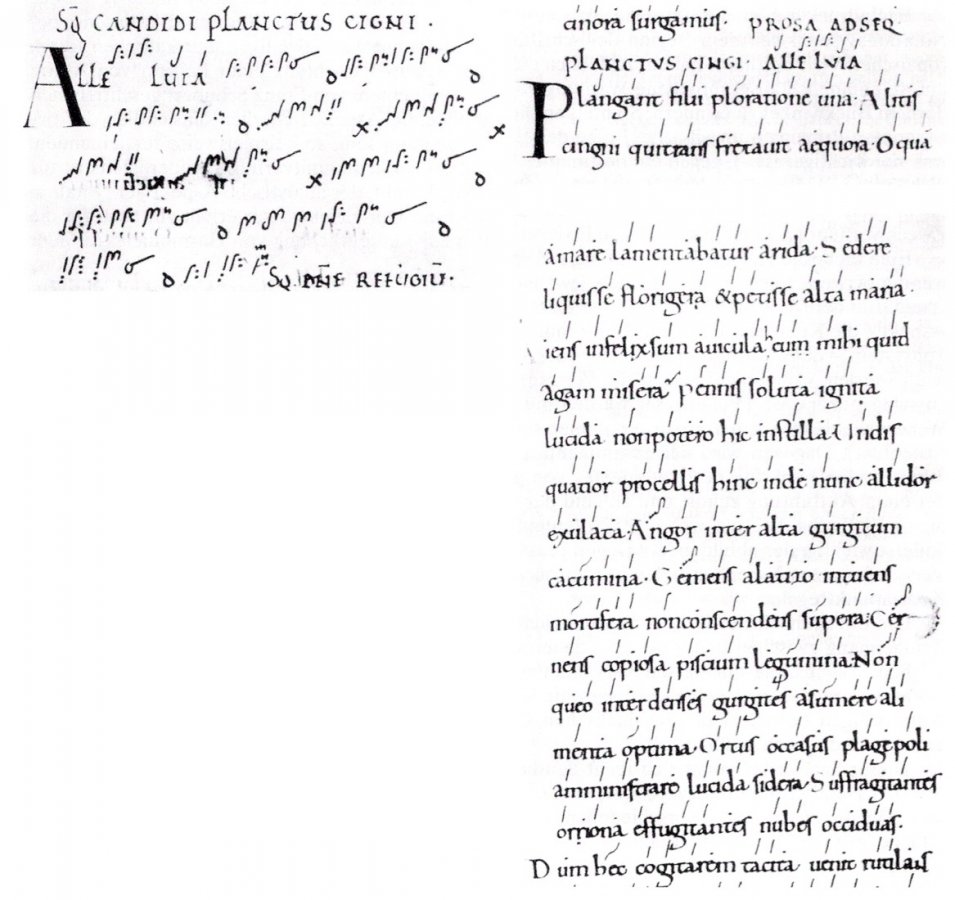 SQ̄ CANDIDI PLANCTUS CIGNI ·
ALLE LUIA
SQ̄ BNE RELIGIŪ·
canora surgamus. PROSA AD SEQ̄
PLANCTVS CINGI· ALLE LVIA
Plangant filii ploratione una· Alitis
cangni qui trans fretauit aequora· O quā
amare lamentabatur arida· Sedere
liquisse florigera &petisse alta maria·
iens infelix sum auicula cum mihi quid
agam misera pennis soluta ignita
lucida non potero hic instilla Undis
quatior procellis hinc inde nunc allidor
exulata· Angor inter alta gurgitum
cacumina· Gemens alatizo intuens
mortifera non conscendens supera· Cer
nens copiosa piscium legumina Non
queo inter denses gurgites asumere ali
menta optima· Ortus occasus plage poli
amministrare lucida sidera· Suffragitantes
orriona effugitantes nubes occiduas.
Dum hec cogitarem tacita uenit rutilais